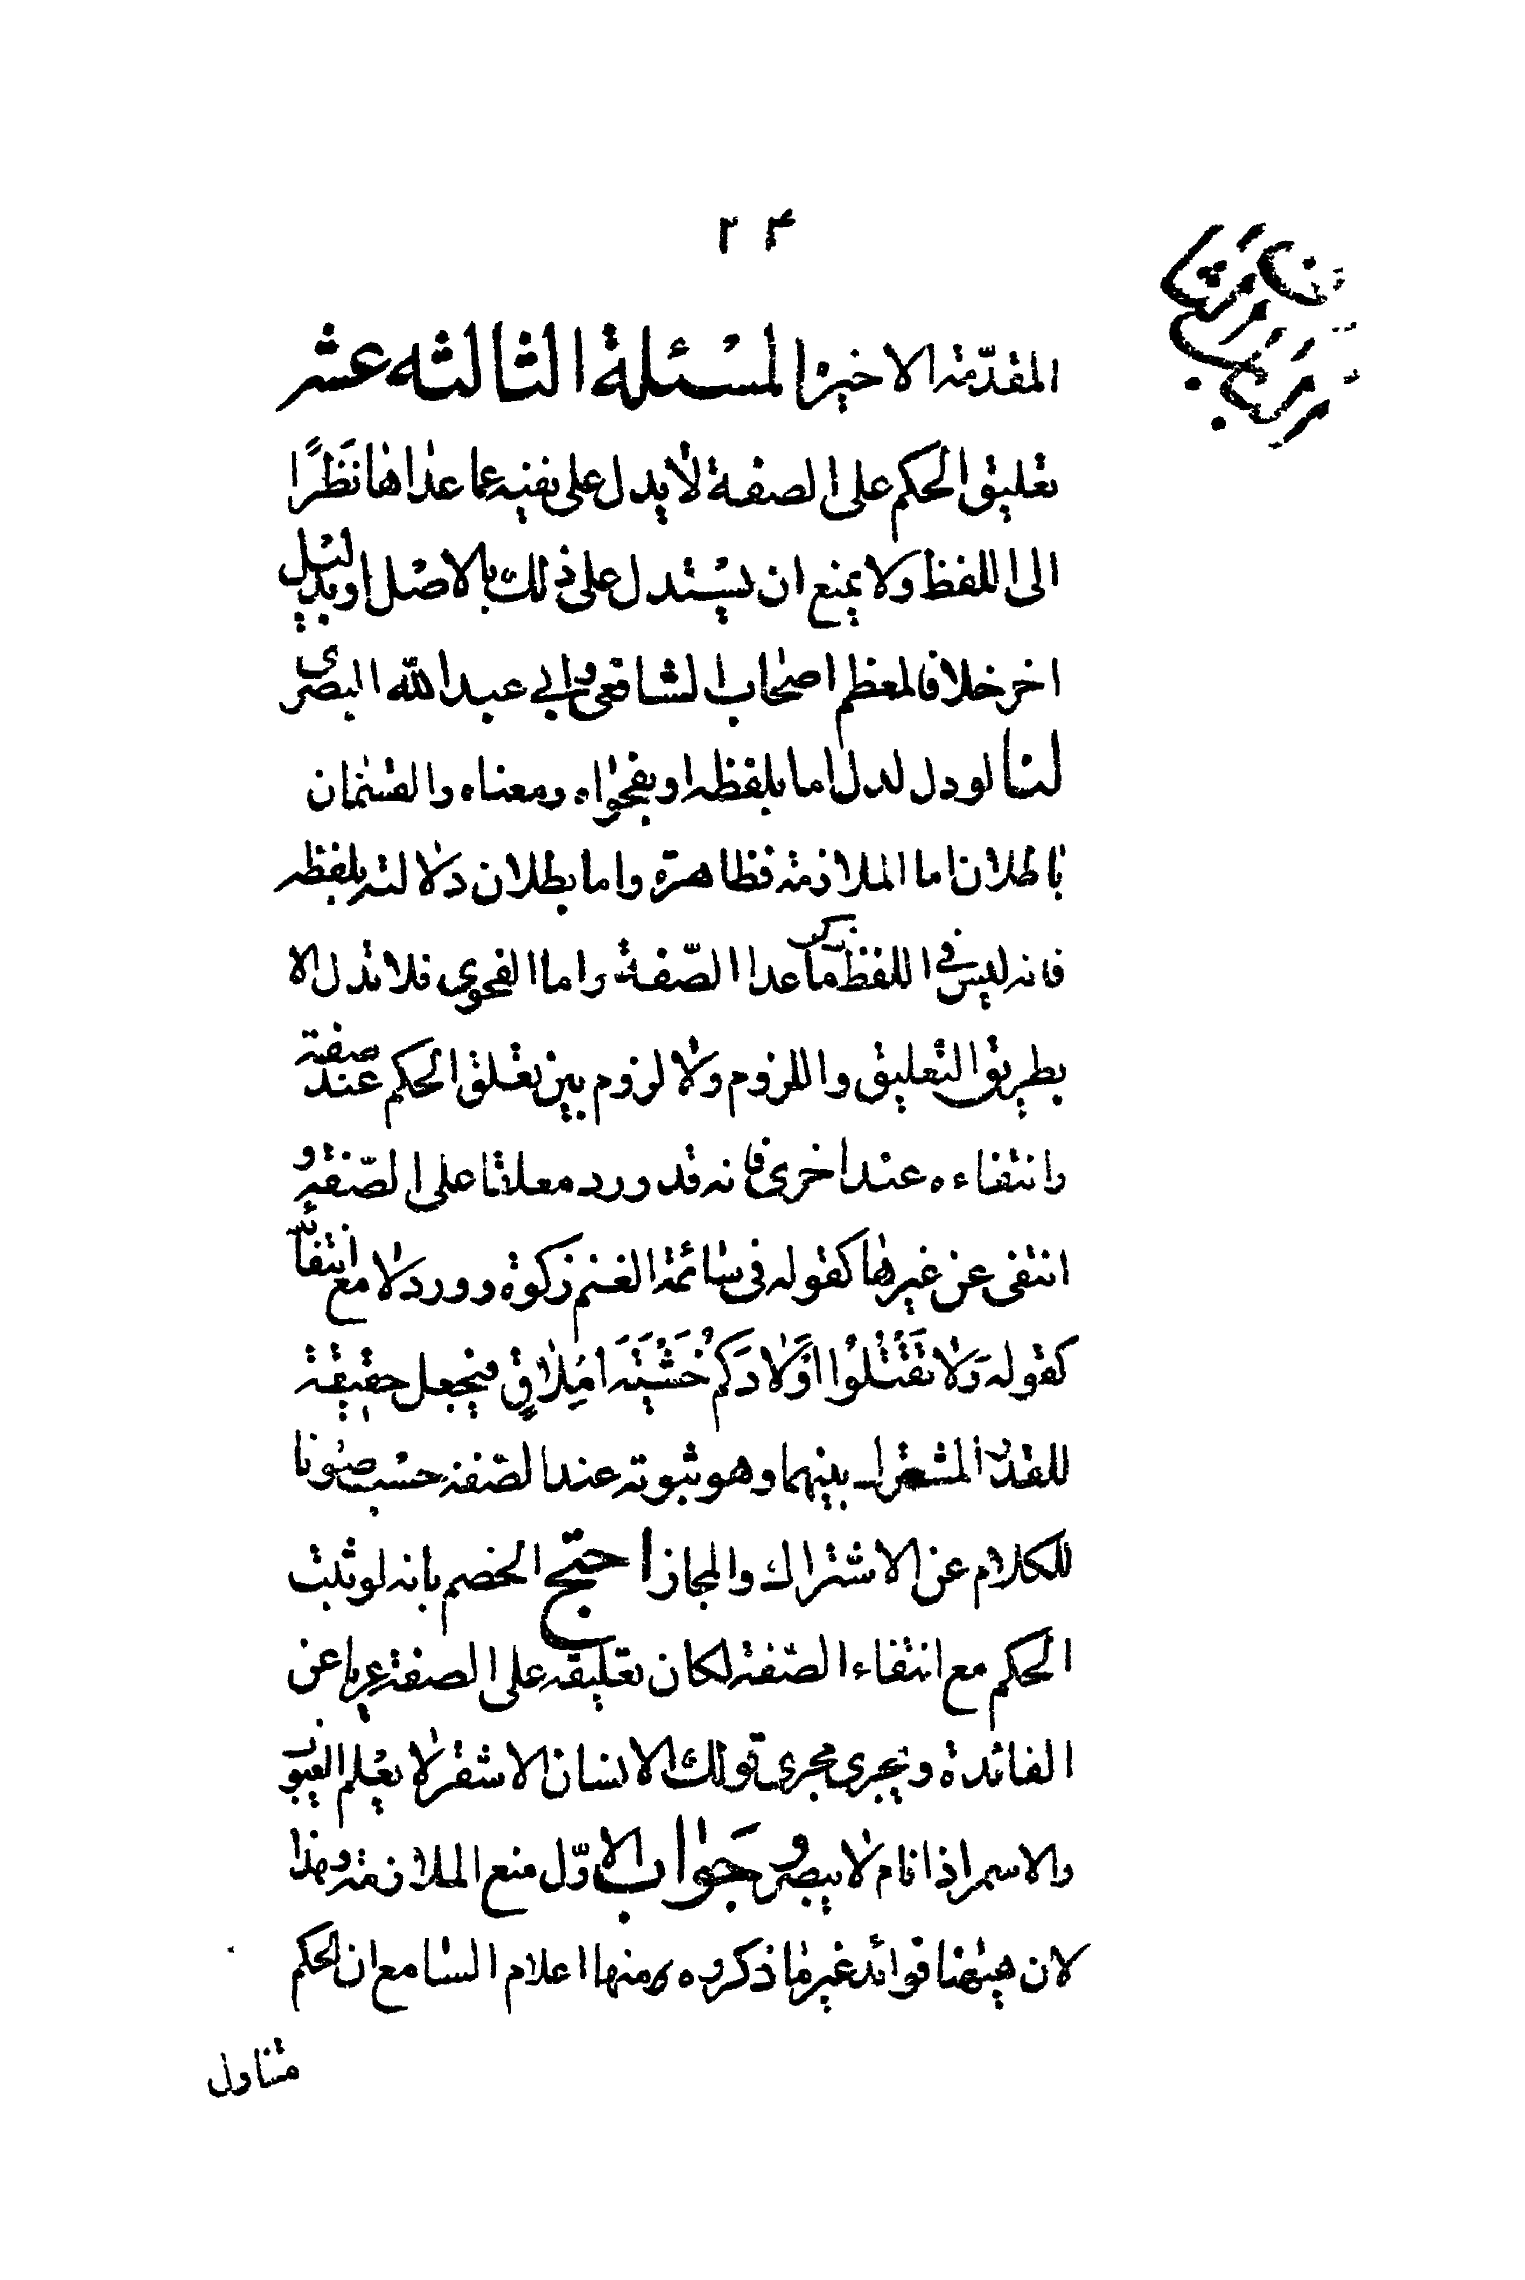 ٢٤
المقدّمة الاخيرة المسئلة الثالثه عشر
تعليق الحكم على الصفة لا يدل على نفيه عما عداها نظرًا
الى اللفظ ولا يمنع ان يستدل على ذلك بالاصل او بدليل
اخر خلافا لمعظم اصحاب الشافعى و ابي عبد الله البصرى
لنا لو دل لدل اما بلفظه او بفحواه ومعناه والقسمان
باطلان اما الملازمة فظاهرة واما بطلان دلالته بلفظه
فانه ليس فى اللفظ ذكر ما عدا الصّفة واما الفحوى فلا تدل الا
بطريق التعليق واللزوم ولا لزوم بين تعلق الحكم عند صفة
وانتفاءه عند اخرى فانه قد ورد معلقا على الصّفة و
انتفى عن غيرها كقوله فى سائمة الغنم زكوة وورد لا مع انتفائه
كقوله وَلا تَقْتُلُوا اَوْلادَكُمْ خَشْيَةَ اِمْلاقٍ فيجعل حقيقة
للقدر المشترك بينهما وهو ثبوته عند الصّفة حسب صونا
للكلام عن الاشتراك والمجاز احتج الخصم بانه لو ثبت
الحكم مع انتفاء الصّفة لكان تعليقه على الصفة عريا عن
الفائدة ويجرى مجرى قولك الانسان الاشقر لا يعلم الغيوب
والاسمر اذا نام لا يبصر و جواب الاوّل منع الملازمة وهذا
لان هيهنا فوائد غير ما ذكروه منها اعلام السامع ان الحكم
متناول